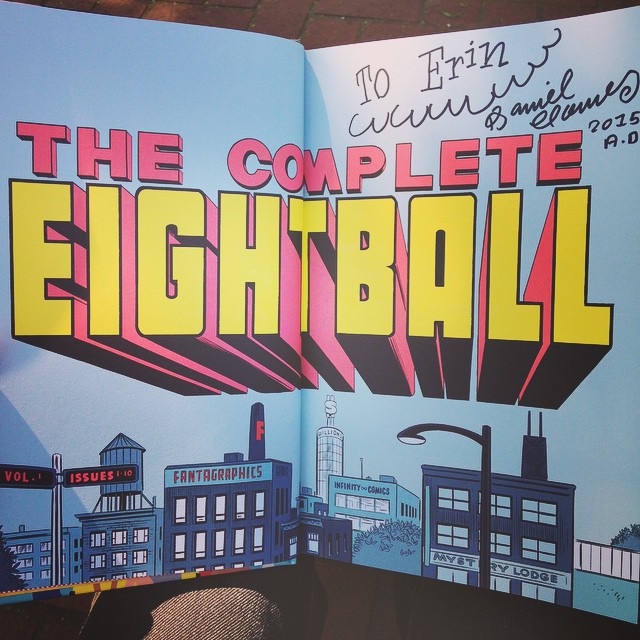 To Erin
Daniel Clowes
2015
A.D
THE COMPLETE
EIGHTBALL
VOL. 1
ISSUES 1-18
FANTAGRAPHICS
INFINITY COMICS
MYSTERY LODGE
F
$